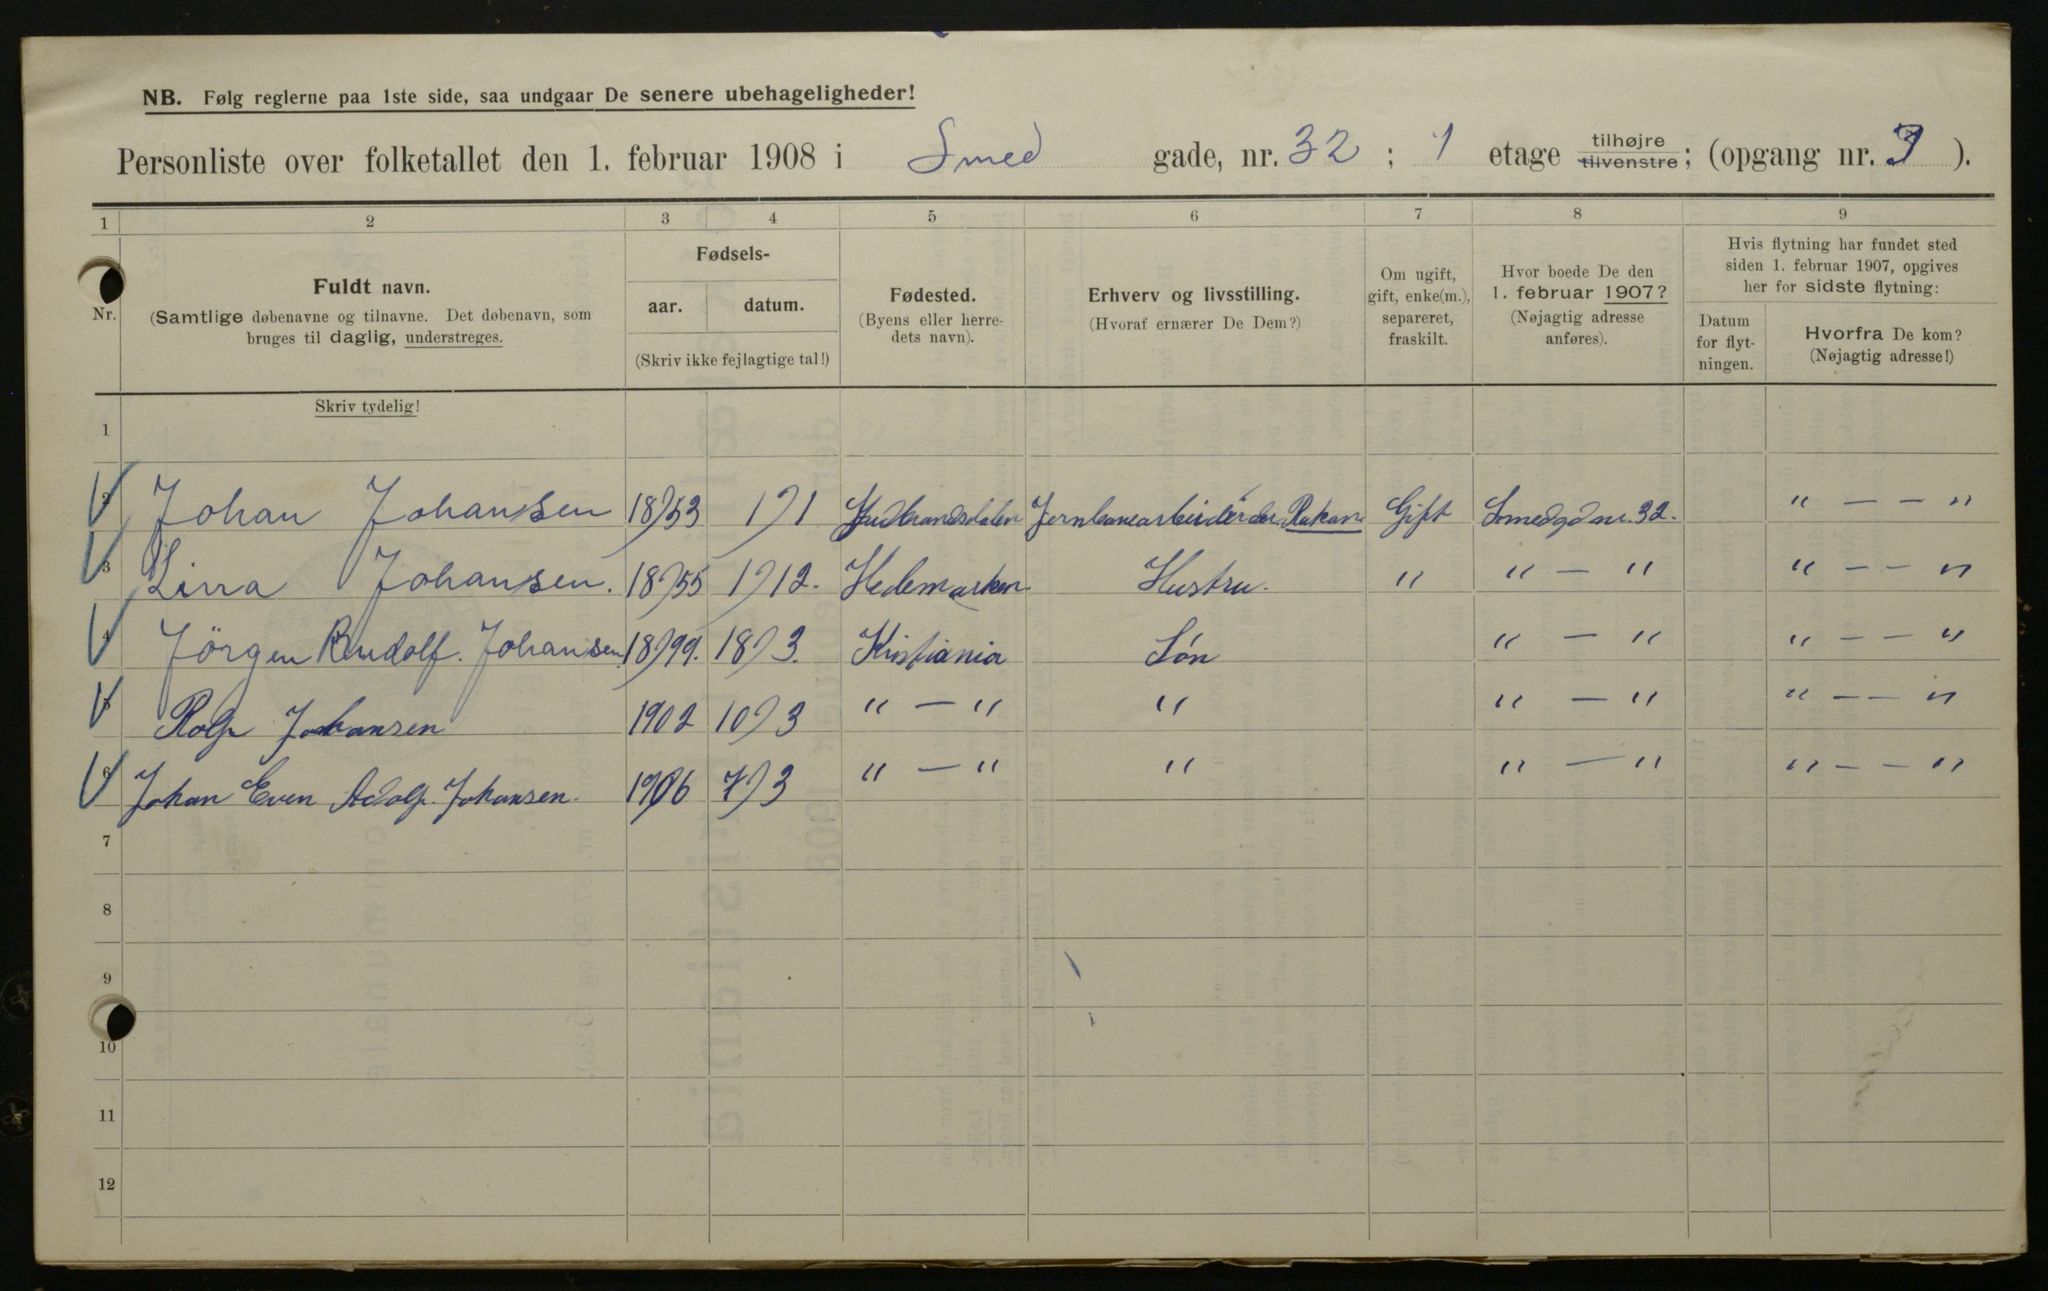 NB. Følg reglerne paa 1ste side, saa undgaar De senere ubehageligheder!
Personliste over folketallet den 1. februar 1908 i Smed gade, nr. 32 ; 1 etage tilhøjre tilvenstre; (opgang nr. ).
1 2 3 4 5 6 7 8 9
Nr.
Fuldt navn.
(Samtlige døbenavne og tilnavne. Det døbenavn, som
bruges til daglig, understreges.
Skriv tydelig!
Fødsels-
aar. datum.
(Skriv ikke fejlagtige tal!)
Fødested.
(Byens eller herre-
dets navn).
Erhverv og livsstilling.
(Hvoraf ernærer De Dem?)
Om ugift,
gift, enke(m.),
separeret,
fraskilt.
Hvor boede De den
1. februar 1907?
(Nøjagtig adresse
anføres).
Hvis flytning har fundet sted
siden 1. februar 1907, opgives
her for sidste flytning:
Datum
for flyt-
ningen.
Hvorfra De kom?
(Nøjagtig adresse!)
1
2 Johan Johansen 18/53 1/1 Gudbrandsdalen Jernbanearbeider Gift Smedgd nr. 32. " — — "
3 Lina Johansen. 18/55 1/12. Hedemarken Hustru. " " — " " — — "
4 Jörgen Rudolf. Johansen 18/99. 18/3. Kristiania Søn " — " " — — "
5 Rolf Johansen 1902 10/3 " — " " " — " " — — "
6 Johan Even Adolf. Johansen. 1906 7/3 " — " " " — " " — — "
7
8
9
10
11
12